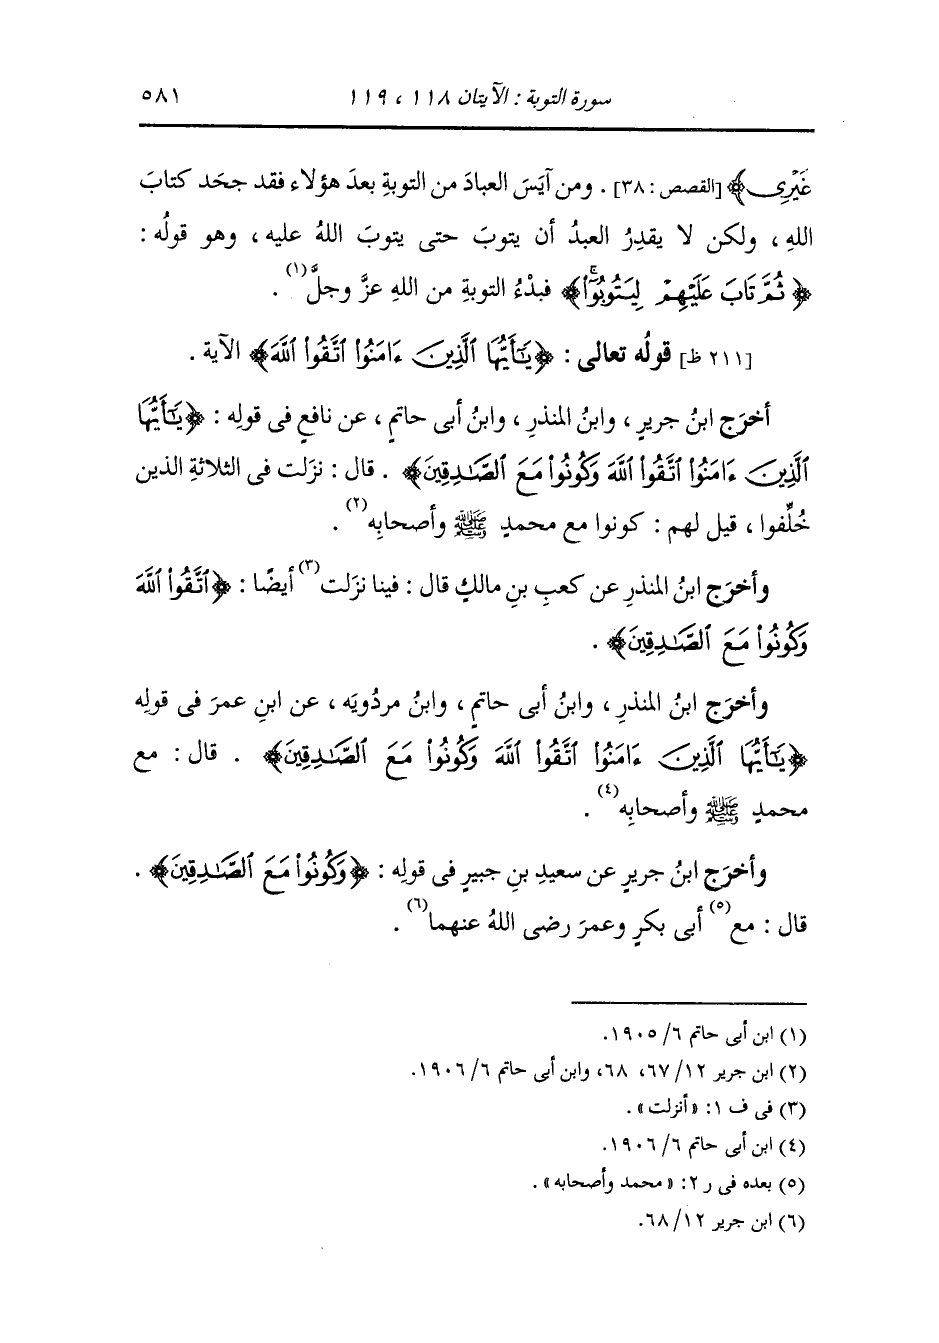 سورة التوبة : الآيتان ١١٨ ، ١١٩ ٥٨١
غَيْرِي﴾ [القصص : ٣٨] . ومن آيَسَ العبادَ من التوبةِ بعدَ هؤلاء فقد جحَد كتابَ
اللهِ ، ولكن لا يقدِرُ العبدُ أن يتوبَ حتى يتوبَ اللهُ عليه ، وهو قولُه :
﴿ثُمَّ تَابَ عَلَيْهِمْ لِيَتُوبُوٓا۟ۚ﴾ فبدْءُ التوبةِ من اللهِ عزَّ وجلَّ(١) .
[٢١١ ظ] قولُه تعالى : ﴿يَٰٓأَيُّهَا ٱلَّذِينَ ءَامَنُوا۟ ٱتَّقُوا۟ ٱللَّهَ﴾ الآية .
أخرَج ابنُ جريرٍ ، وابنُ المنذرِ ، وابنُ أبى حاتمٍ ، عن نافعٍ فى قولِه : ﴿يَٰٓأَيُّهَا
ٱلَّذِينَ ءَامَنُوا۟ ٱتَّقُوا۟ ٱللَّهَ وَكُونُوا۟ مَعَ ٱلصَّٰدِقِينَ﴾ . قال : نزَلت فى الثلاثةِ الذين
خُلِّفوا ، قيل لهم : كونوا مع محمدٍ ﷺ وأصحابِه(٢) .
وأخرَج ابنُ المنذرِ عن كعبِ بنِ مالكٍ قال : فينا نزَلت(٣) أيضًا : ﴿ٱتَّقُوا۟ ٱللَّهَ
وَكُونُوا۟ مَعَ ٱلصَّٰدِقِينَ﴾ .
وأخرَج ابنُ المنذرِ ، وابنُ أبى حاتمٍ ، وابنُ مردُويَه ، عن ابنِ عمرَ فى قولِه
﴿يَٰٓأَيُّهَا ٱلَّذِينَ ءَامَنُوا۟ ٱتَّقُوا۟ ٱللَّهَ وَكُونُوا۟ مَعَ ٱلصَّٰدِقِينَ﴾ . قال : مع
محمدٍ ﷺ وأصحابِه(٤) .
وأخرَج ابنُ جريرٍ عن سعيدِ بنِ جبيرٍ فى قولِه : ﴿وَكُونُوا۟ مَعَ ٱلصَّٰدِقِينَ﴾ .
قال : مع(٥) أبى بكرٍ وعمرَ رضى اللهُ عنهما(٦) .
(١) ابن أبى حاتم ٦/ ١٩٠٥.
(٢) ابن جرير ١٢/ ٦٧، ٦٨، وابن أبى حاتم ٦/ ١٩٠٦.
(٣) فى ف ١: «أنزلت» .
(٤) ابن أبى حاتم ٦/ ١٩٠٦.
(٥) بعده فى ر ٢: «محمد وأصحابه» .
(٦) ابن جرير ١٢/ ٦٨.